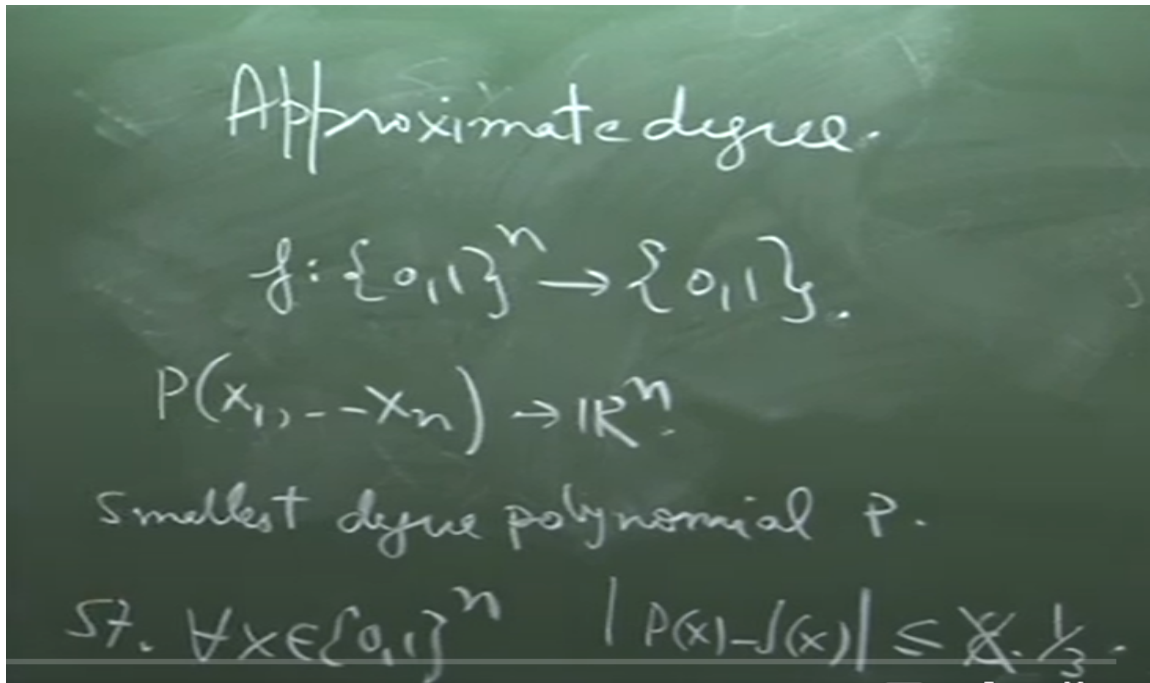 Approximate degree.
f: {0,1}^n → {0,1}.
P(x1, --xn) → IR^n.
Smallest degree polynomial P.
St. ∀x∈{0,1}^n |P(x)-f(x)| ≤ 1/3.